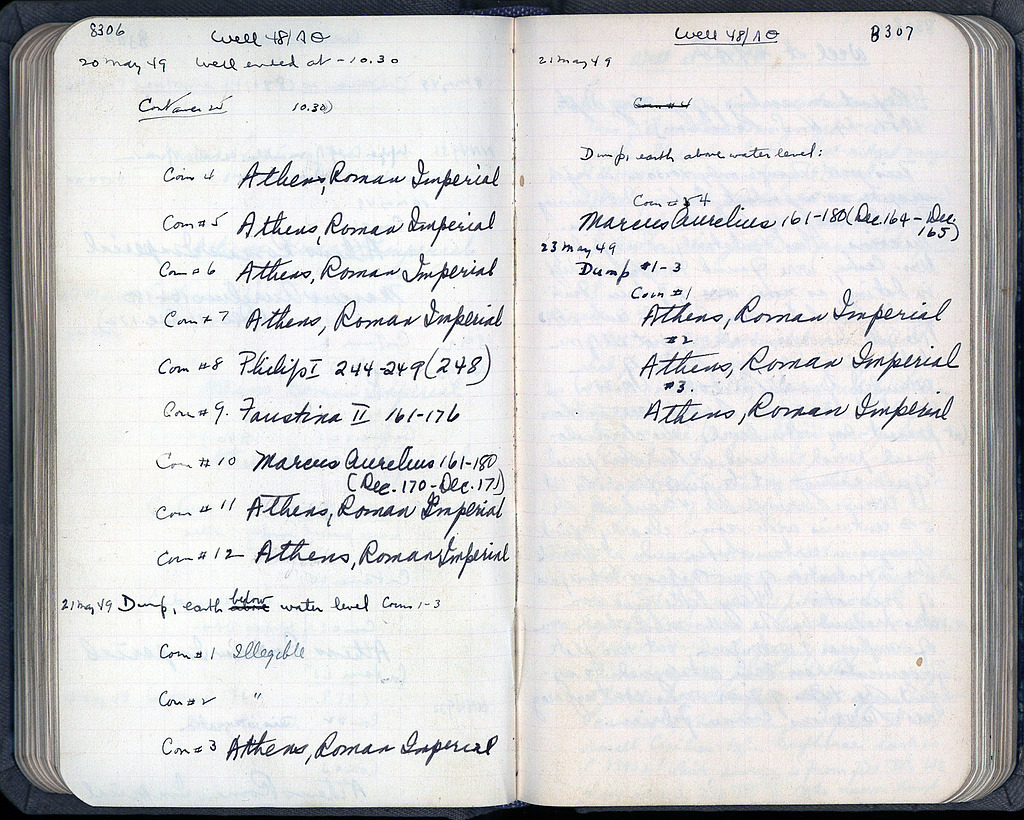 8306
Well 48/ΛΘ
20 May 49 Well ended at -10.30
10.30)
Coin 4 Athens, Roman Imperial
Coin #5 Athens, Roman Imperial
Coin #6 Athens, Roman Imperial
Coin #7 Athens, Roman Imperial
Coin #8 Philip I 244-249 (248)
Coin #9. Faustina II 161-176
Coin #10 Marcus Aurelius 161-180
(Dec. 170-Dec. 171)
Coin #11 Athens, Roman Imperial
Coin #12 Athens, Roman Imperial
21 May 49 Dump, earth below water level Coins 1-3
Coin #1 Illegible
Coin #2 "
Coin #3 Athens, Roman Imperial
Well 48/ΛΘ
8307
21 May 49
Coin #4
Dump, earth above water level:
Coin # 4
Marcus Aurelius 161-180 (Dec. 164 - Dec.
165)
23 May 49
Dump #1-3
Coin #1
Athens, Roman Imperial
#2
Athens, Roman Imperial
#3.
Athens, Roman Imperial